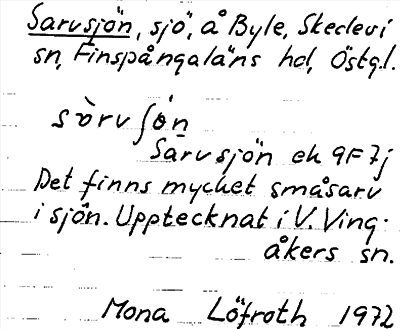 Sarvsjön, sjö, å Byle, Skedevi
sn, Finspångaläns hd, Östgl.
sòrvʃón
Sarvsjön ek 9F7j
Det finns mycket småsarv
i sjön. Upptecknat i V. Ving-
åkers sn.
Mona Löfroth 1972